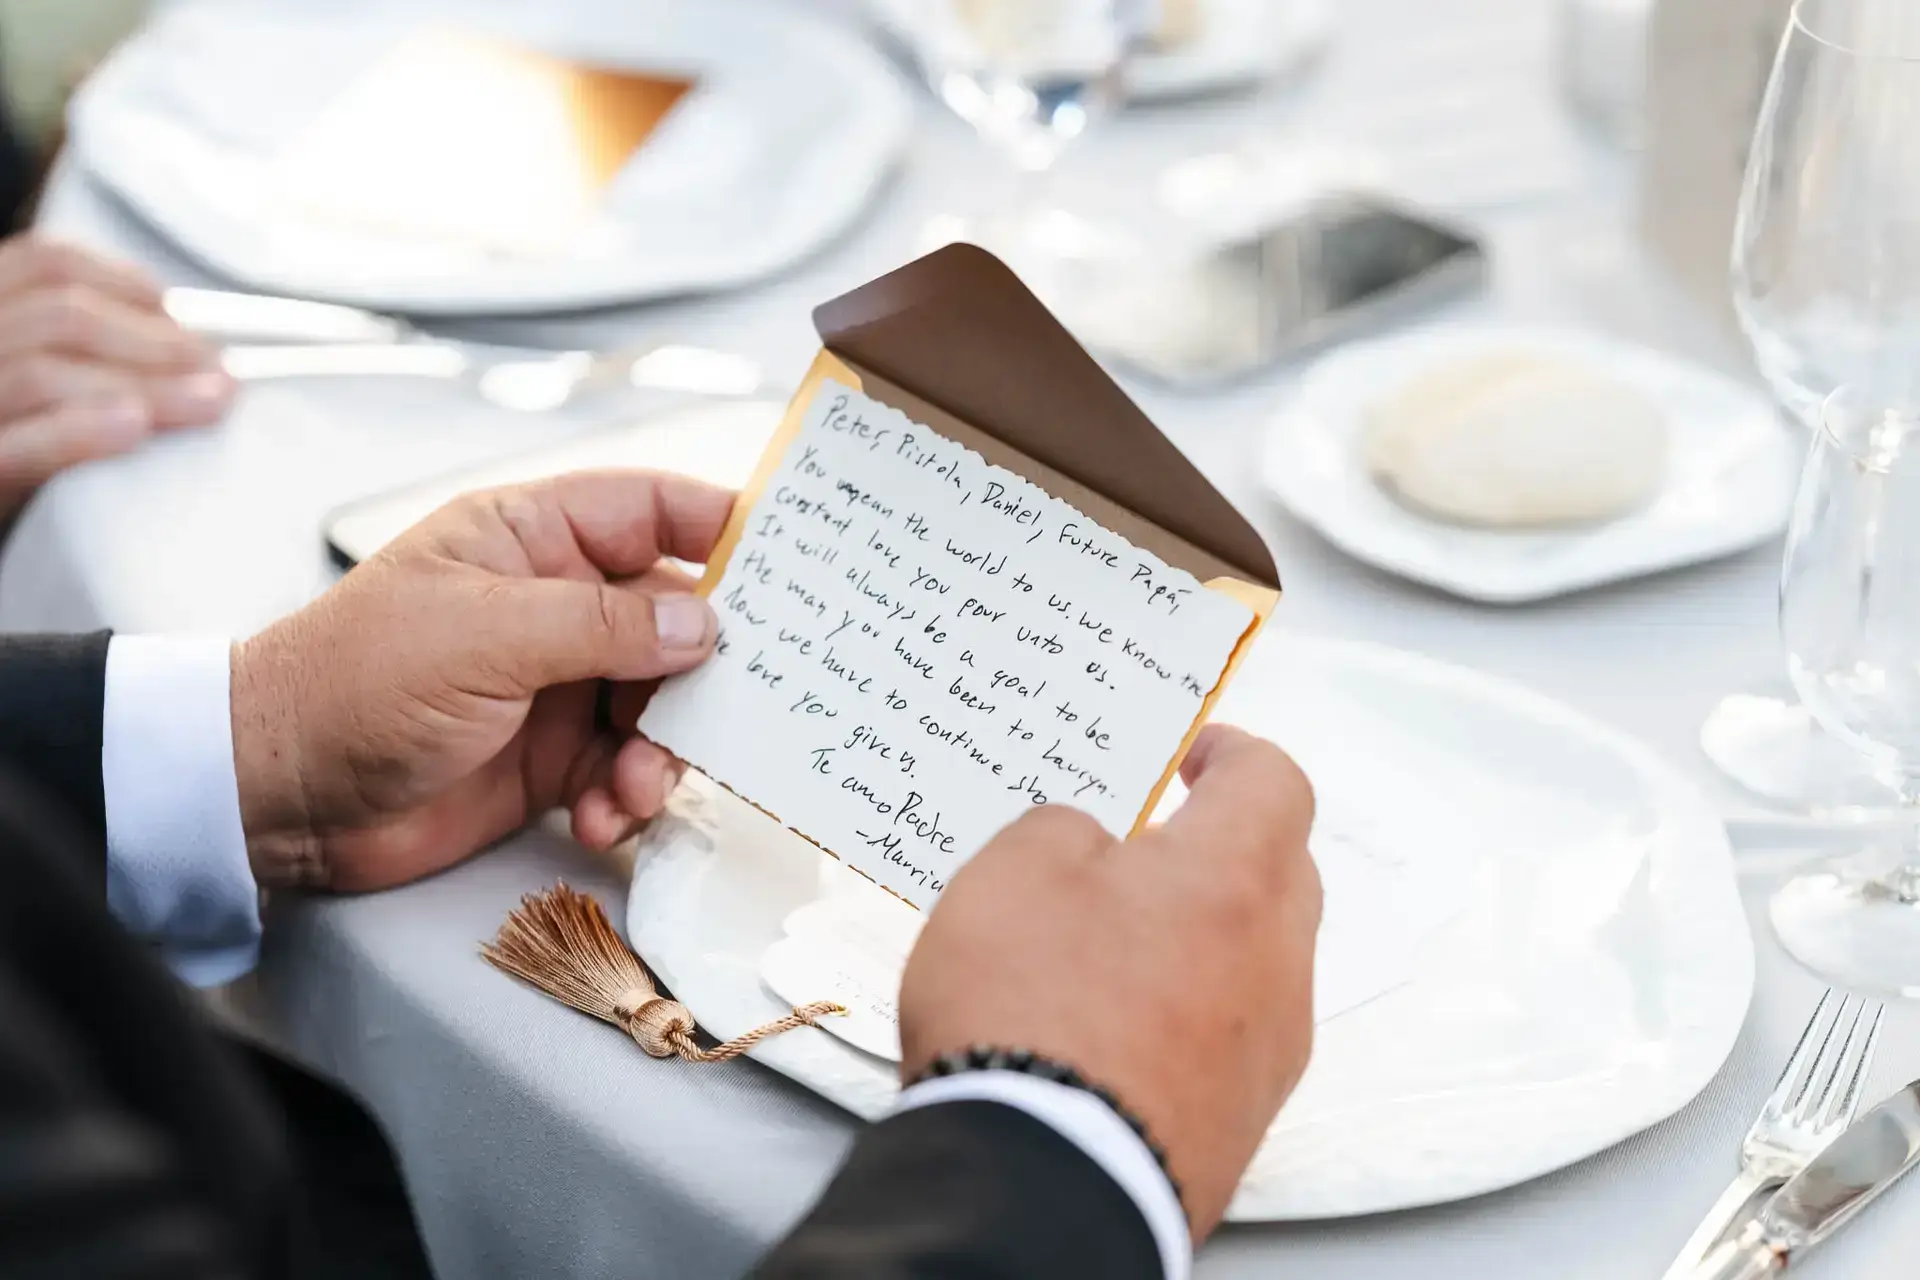 Peter, Pistola, Daniel, Future Papá,
You mean the world to us. We know the
constant love you pour unto us.
It will always be a goal to be
the man you have been to Lauryn.
Now we have to continue sho
the love you give us.
Te amo Padre